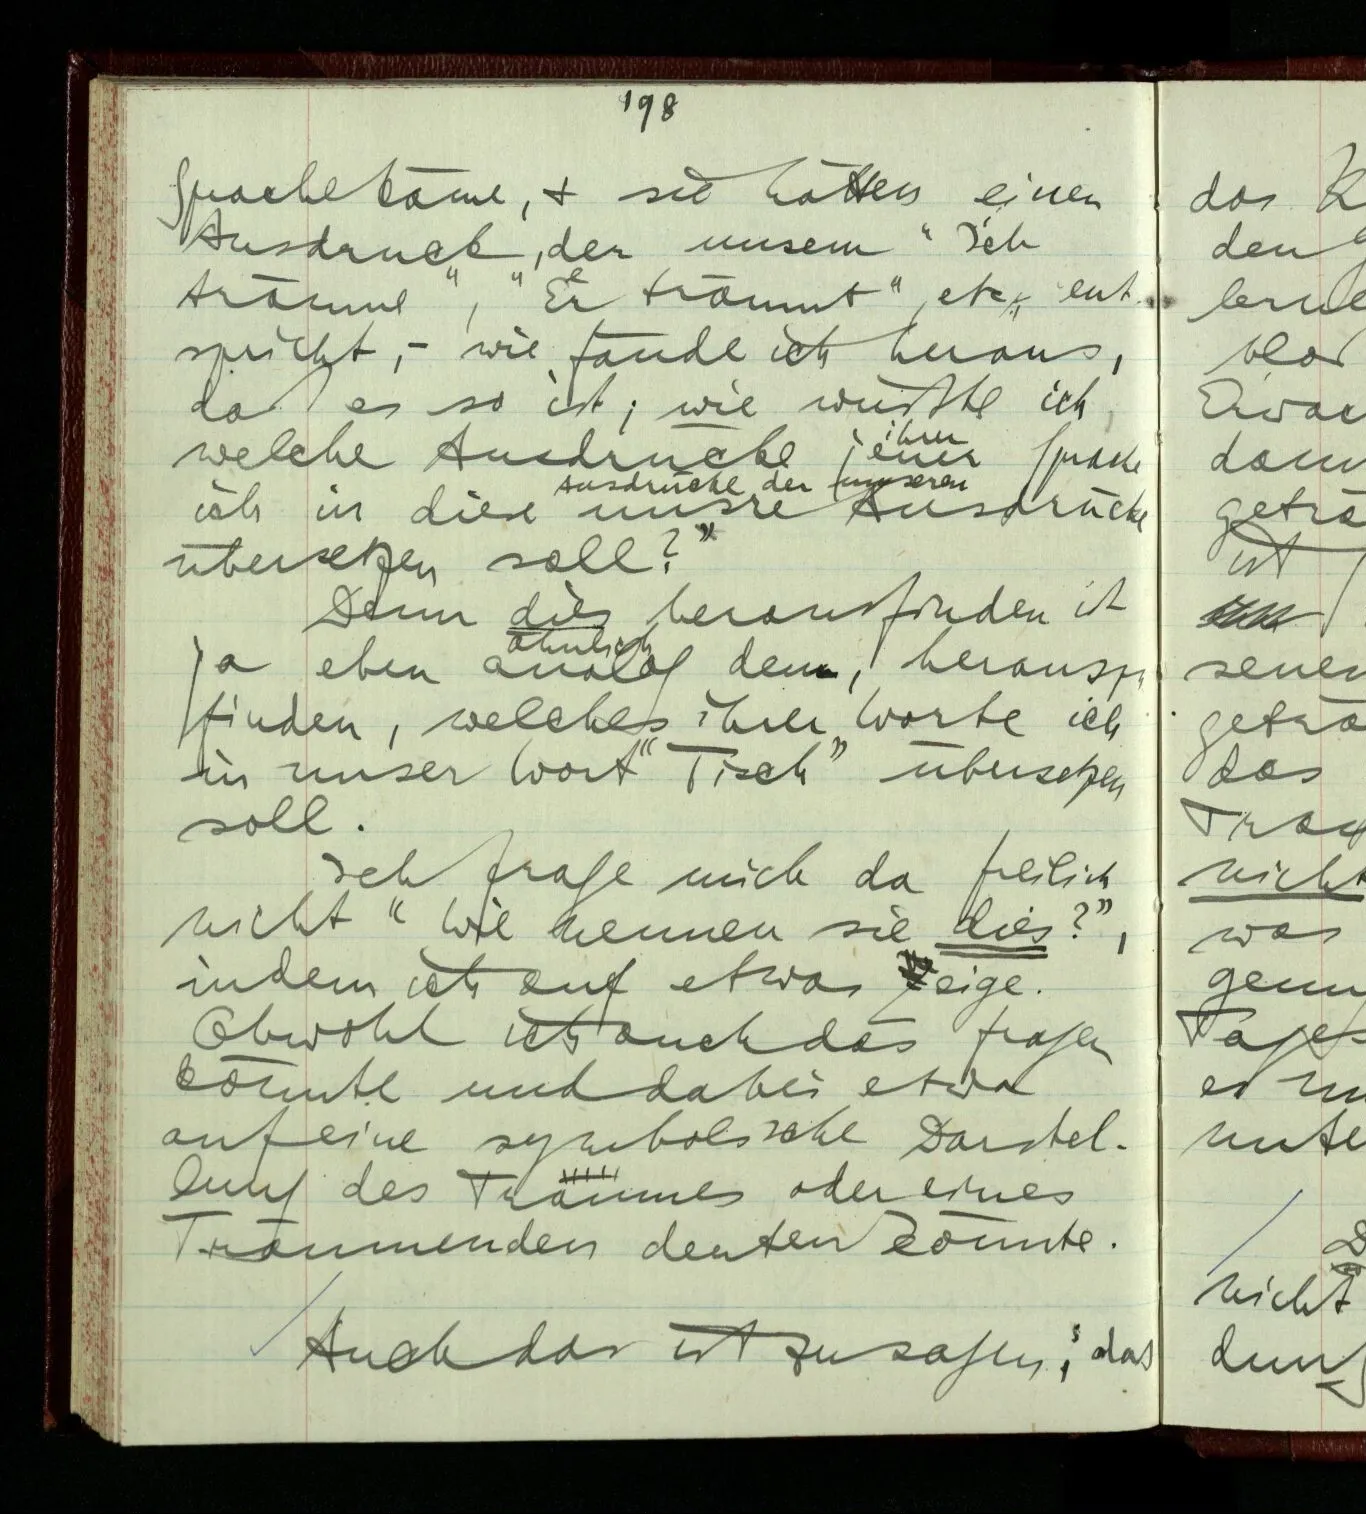 198
Sprache käme, & sie hätten einen
Ausdruck, der unserm “Ich
träume”, “Er träumt”, etc, ent-
spricht, – wie fände ich heraus,
daß es so ist; wie wüßte ich,
welche Ausdrücke jener ihrer Sprache
Ausdrücke der unseren
ich in diese unsre Ausdrücke
übersetzen soll?”
Denn dies herausfinden ist
ähnlich
ja eben analog dem, herauszu-
finden, welches ihrer Worte ich
in unser Wort “Tisch” übersetzen
soll.
Ich frage mich da freilich
nicht “Wie nennen sie dies?”,
indem ich auf etwas zeige.
Obwohl ich auch das fragen
könnte und dabei etwa
auf eine symbolische Darstel-
lung des Traumes oder eines
Träumenden deuten könnte.
Auch das ist zu sagen: das
das
den
lerne
bloß
Erwac
dann
geträ
ist
senen
geträ
das
Trau
nicht
was
genu
Tages
es
unte
nicht
dung